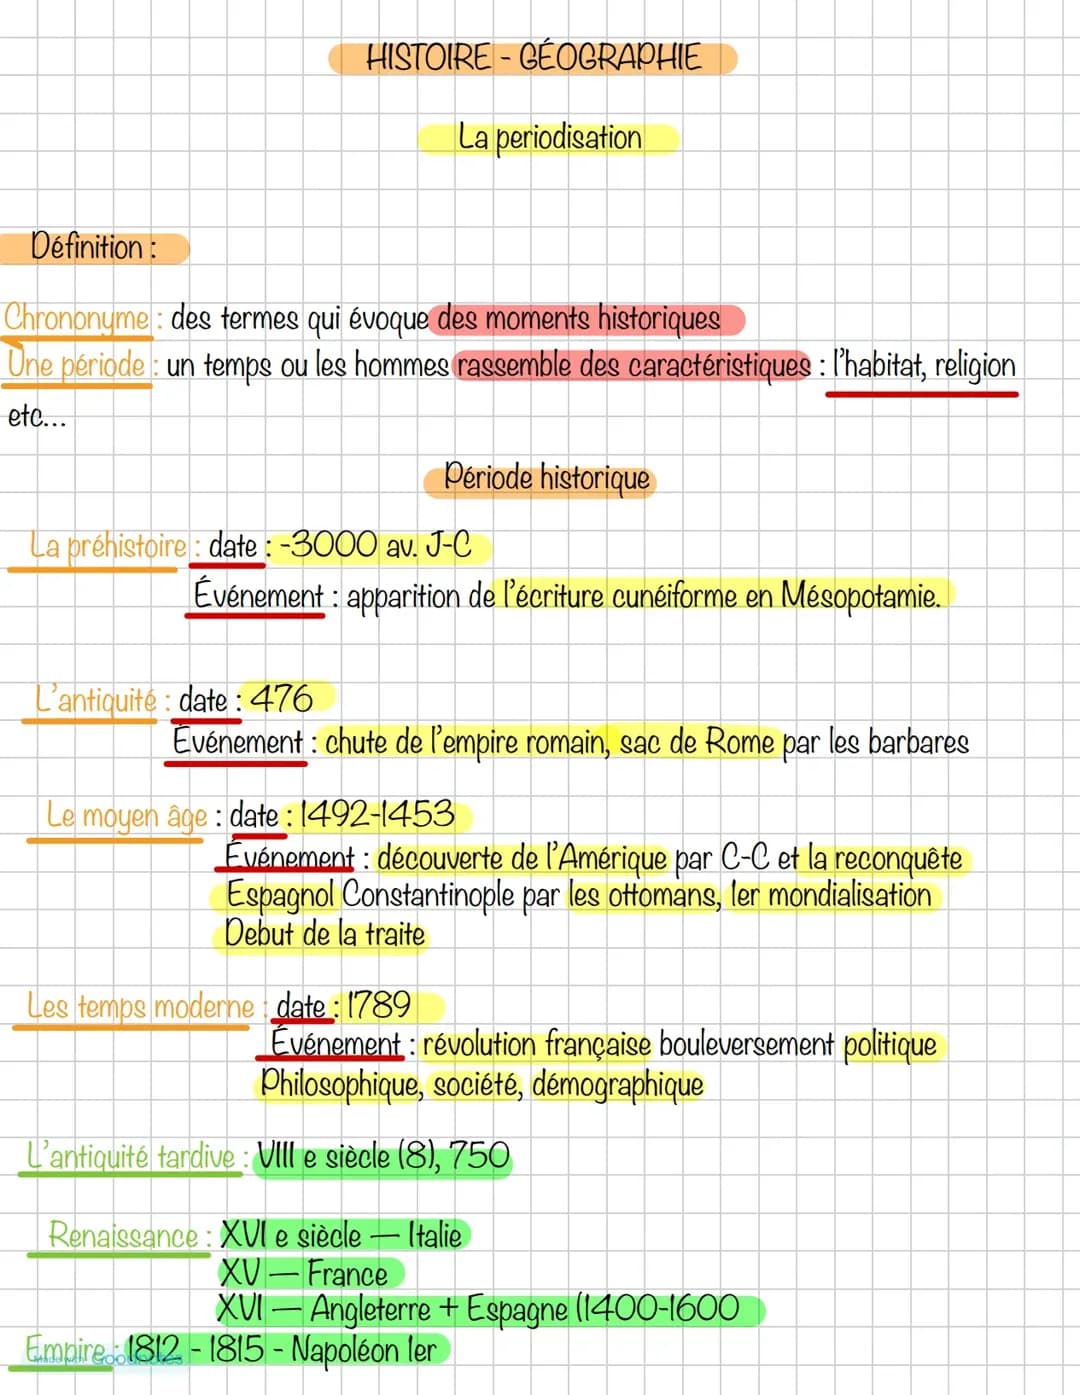 HISTOIRE - GÉOGRAPHIE
La periodisation
Définition :
Chrononyme : des termes qui évoque des moments historiques
Une période : un temps ou les hommes rassemble des caractéristiques : l'habitat, religion
etc...
Période historique
La préhistoire : date : -3000 av. J-C
Événement : apparition de l'écriture cunéiforme en Mésopotamie.
L'antiquité : date : 476
Événement : chute de l'empire romain, sac de Rome par les barbares
Le moyen âge : date : 1492-1453
Événement : découverte de l'Amérique par C-C et la reconquête
Espagnol Constantinople par les ottomans, 1er mondialisation
Debut de la traite
Les temps moderne : date : 1789
Événement : révolution française bouleversement politique
Philosophique, société, démographique
L'antiquité tardive : VIII e siècle (8), 750
Renaissance : XVI e siècle — Italie
XV — France
XVI — Angleterre + Espagne (1400-1600
Empire : 1812 - 1815 - Napoléon 1er
Made with Goodnotes